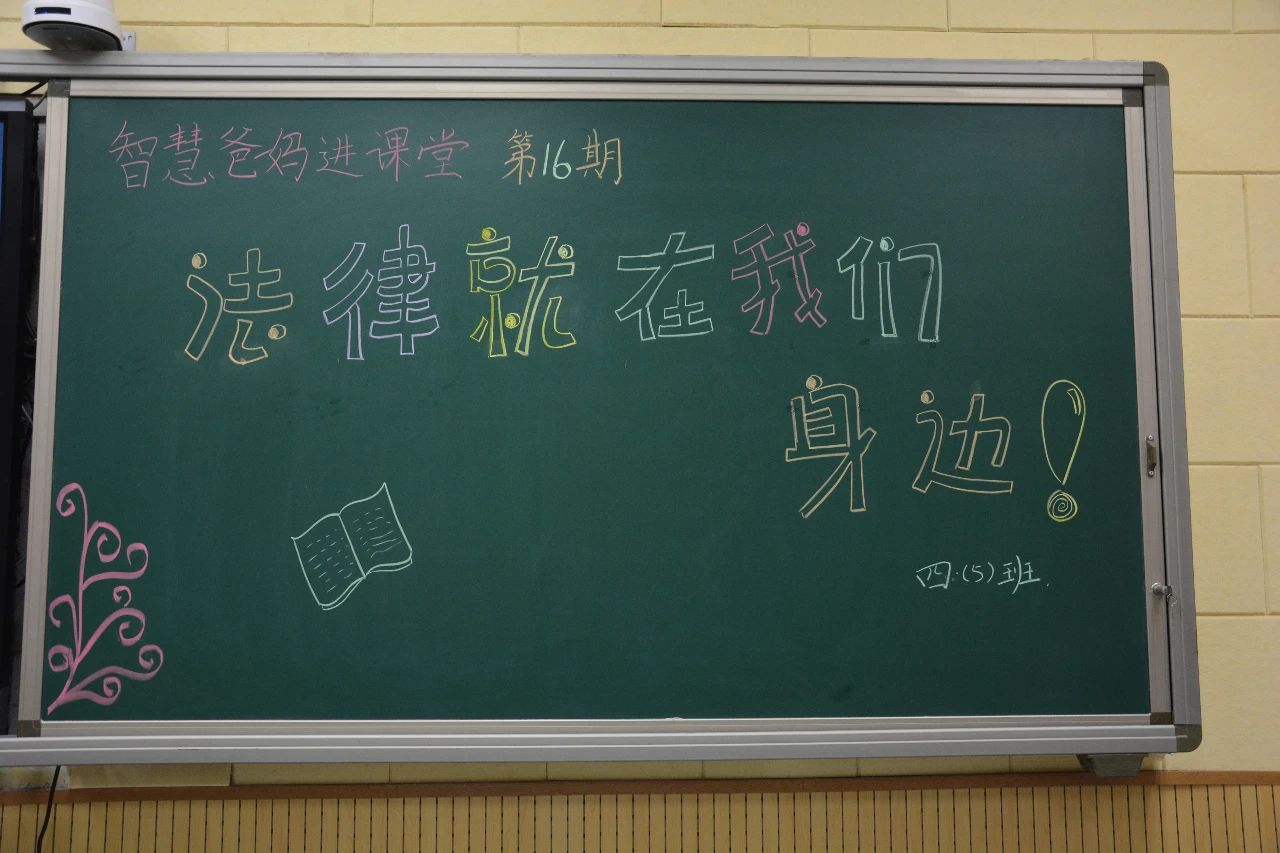 智慧爸妈进课堂 第16期
法律就在我们
身边!
四.(5)班.